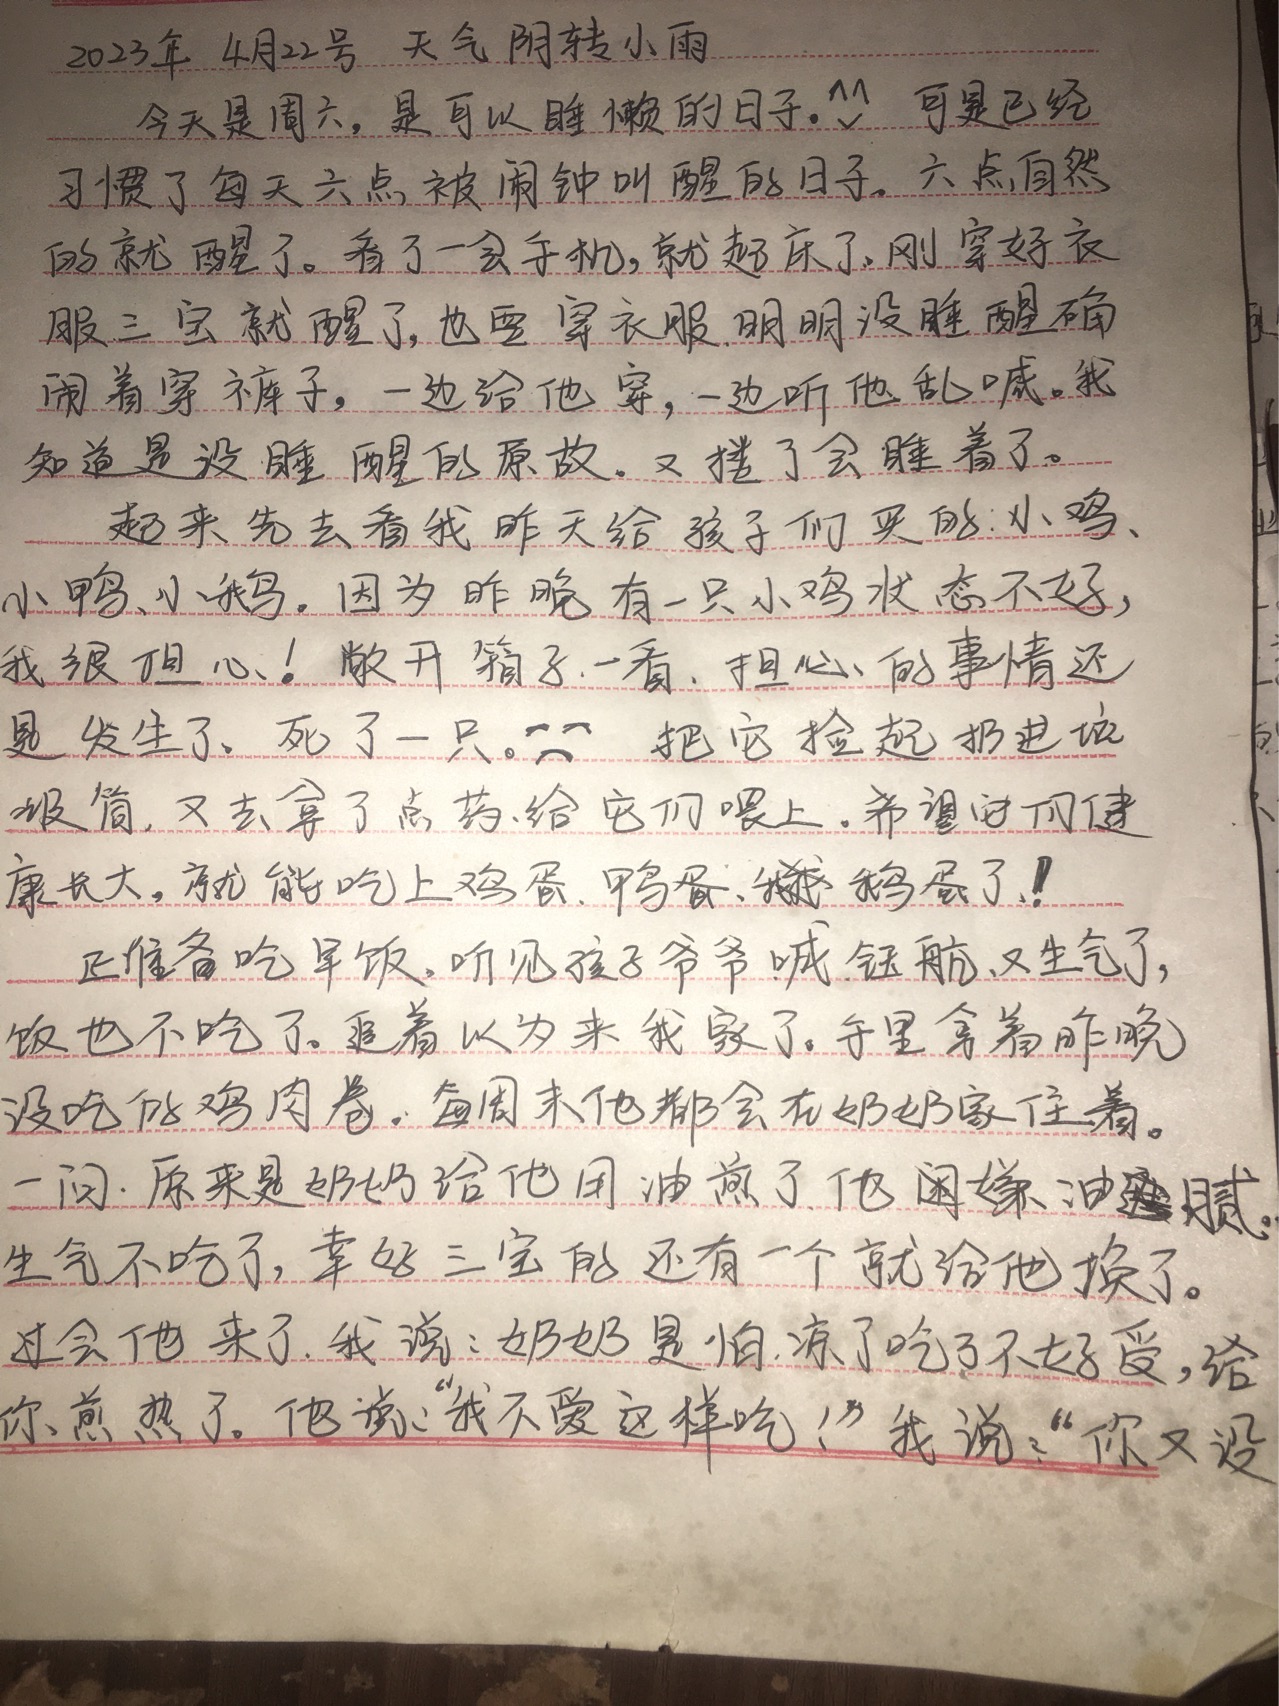 2023年 4月22号 天气 阴转小雨
今天是周六，是可以睡懒的日子。^^ 可是已经
习惯了每天六点被闹钟叫醒的日子。六点自然
的就醒了。看了一会手机，就起床了，刚穿好衣
服三宝就醒了，也要穿衣服，明明没睡醒确
闹着穿裤子，一边给他穿，一边听他乱喊。我
知道是没睡醒的原故。又搂了会睡着了。
起来先去看我昨天给孩子们买的：小鸡、
小鸭、小鹅。因为昨晚有一只小鸡状态不好，
我很担心！敞开箱子一看，担心的事情还
是发生了，死了一只。把它捡起扔进垃
圾筒，又去拿了点药给它们喂上。希望它们健
康长大，就能吃上鸡蛋、鸭蛋、鹅蛋了！
正准备吃早饭，听见孩子爷爷喊钰航又生气了，
饭也不吃了。追着以为来我家了。手里拿着昨晚
没吃的鸡肉卷。每周末他都会在奶奶家住着。
一问，原来是奶奶给他用油煎了，他闲嫌油腻。
生气不吃了，幸好三宝的还有一个就给他换了。
过会他来了，我说：奶奶是怕凉了吃了不好受，给
你煎热了。他说：“我不爱这样吃！”我说：“你又没